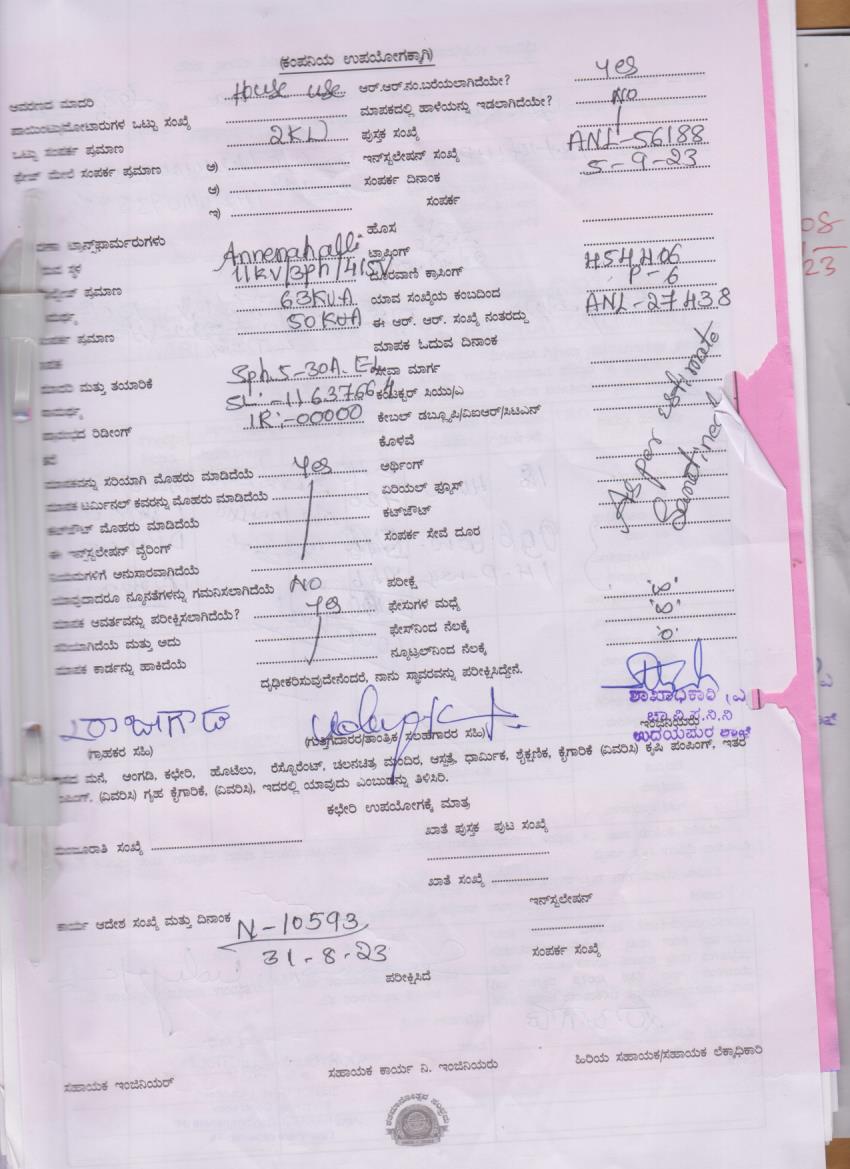 (ಕಂಪನಿಯ ಉಪಯೋಗಕ್ಕಾಗಿ)
ಆವರಣದ ಮಾದರಿ House use ಆರ್.ಆರ್.ನಂ.ಬರೆಯಲಾಗಿದೆಯೇ? Yes
ಪಾಯಿಂಟ್ಸು/ಮೋಟಾರುಗಳ ಒಟ್ಟು ಸಂಖ್ಯೆ ಮಾಪಕದಲ್ಲಿ ಹಾಳೆಯನ್ನು ಇಡಲಾಗಿದೆಯೇ? NO
ಒಟ್ಟು ಸಂಪರ್ಕ ಪ್ರಮಾಣ 2KW ಪುಸ್ತಕ ಸಂಖ್ಯೆ
ಫೇಜ್ ಮೇಲೆ ಸಂಪರ್ಕ ಪ್ರಮಾಣ ಅ) ಇನ್‌ಸ್ಟಲೇಷನ್ ಸಂಖ್ಯೆ ANL-56188
ಆ) ಸಂಪರ್ಕ ದಿನಾಂಕ 5-9-23
ಇ) ಸಂಪರ್ಕ
ಟ್ರಾನ್ಸ್‌ಫಾರ್ಮರುಗಳು ಹೊಸ
ಸ್ಥಳ Annenahalli ಟ್ರಾಪಿಂಗ್
ಪ್ರಮಾಣ 11KV/3ph/415V ದೂರವಾಣಿ ಕ್ರಾಸಿಂಗ್ 454406
63KVA ಯಾವ ಸಂಖ್ಯೆಯ ಕಂಬದಿಂದ P-6
ಪ್ರಮಾಣ 50KVA ಈ ಆರ್. ಆರ್. ಸಂಖ್ಯೆ ನಂತರದ್ದು ANL-27438
ಮಾಪಕ ಓದುವ ದಿನಾಂಕ
ಮತ್ತು ತಯಾರಿಕೆ Sph.5-30A. ಸೇವಾ ಮಾರ್ಗ
SL:-11637664 ಕಂಟಕ್ಟರ್ ಸಿಯು/ಎ
ರಿಡೀಂಗ್ IR:-00000 ಕೇಬಲ್ ಡಬ್ಲ್ಯೂಪಿ/ವಿಐಆರ್/ಸಿಟಿಎನ್
ಕೊಳವೆ
ಮಾಪಕವನ್ನು ಸರಿಯಾಗಿ ಮೊಹರು ಮಾಡಿದೆಯೆ Yes ಅರ್ಥಿಂಗ್
As per estimate Sanctined
ಮಾಪಕ ಟರ್ಮಿನಲ್ ಕವರನ್ನು ಮೊಹರು ಮಾಡಿದೆಯೆ ಏರಿಯಲ್ ಫ್ಯೂಸ್
ಕಟ್‌ಔಟ್ ಮೊಹರು ಮಾಡಿದೆಯೆ ಕಟ್‌ಔಟ್
ಈ ಇನ್‌ಸ್ಟಲೇಷನ್ ವೈರಿಂಗ್ ಸಂಪರ್ಕ ಸೇವೆ ದೂರ
ನಿಯಮಗಳಿಗೆ ಅನುಸಾರವಾಗಿದೆಯೆ
ಯಾವುದಾದರೂ ನ್ಯೂನತೆಗಳನ್ನು ಗಮನಿಸಲಾಗಿದೆಯೆ NO ಪರೀಕ್ಷೆ
ಮಾಪಕ ಆವರ್ತವನ್ನು ಪರೀಕ್ಷಿಸಲಾಗಿದೆಯೆ? Yes ಫೇಸುಗಳ ಮಧ್ಯೆ
ಸರಿಯಾಗಿದೆಯೆ ಮತ್ತು ಅದು ಫೇಸ್‌ನಿಂದ ನೆಲಕ್ಕೆ
ಮಾಪಕ ಕಾರ್ಡನ್ನು ಹಾಕಿದೆಯೆ ನ್ಯೂಟ್ರಲ್‌ನಿಂದ ನೆಲಕ್ಕೆ '0'
ದೃಢೀಕರಿಸುವುದೇನೆಂದರೆ, ನಾನು ಸ್ಥಾವರವನ್ನು ಪರೀಕ್ಷಿಸಿದ್ದೇನೆ.
ಶಾಖಾಧಿಕಾರಿ (ವಿ)
ಚಾ.ವಿ.ಸ.ನಿ.ನಿ
ಉದಯಪುರ ಶಾಖೆ
(ಗ್ರಾಹಕರ ಸಹಿ) (ಗುತ್ತಿಗೆದಾರರ/ತಾಂತ್ರಿಕ ಸಲಹೆಗಾರರ ಸಹಿ) ಇಂಜಿನಿಯರು
ಮನೆ, ಅಂಗಡಿ, ಕಛೇರಿ, ಹೊಟೆಲು, ರೆಸ್ಟೊರೆಂಟ್, ಚಲನಚಿತ್ರ ಮಂದಿರ, ಆಸ್ಪತ್ರೆ, ಧಾರ್ಮಿಕ, ಶೈಕ್ಷಣಿಕ, ಕೈಗಾರಿಕೆ (ವಿವರಿಸಿ) ಕೃಷಿ ಪಂಪಿಂಗ್, ಇತರ
ಪಂಪಿಂಗ್, (ವಿವರಿಸಿ) ಗೃಹ ಕೈಗಾರಿಕೆ, (ವಿವರಿಸಿ), ಇದರಲ್ಲಿ ಯಾವುದು ಎಂಬುದನ್ನು ತಿಳಿಸಿರಿ.
ಕಛೇರಿ ಉಪಯೋಗಕ್ಕೆ ಮಾತ್ರ
ಮಂಜೂರಾತಿ ಸಂಖ್ಯೆ ಖಾತೆ ಪುಸ್ತಕ ಪುಟ ಸಂಖ್ಯೆ
ಖಾತೆ ಸಂಖ್ಯೆ
ಇನ್‌ಸ್ಟಲೇಷನ್
ಕಾರ್ಯ ಆದೇಶ ಸಂಖ್ಯೆ ಮತ್ತು ದಿನಾಂಕ N-10593
31-8-23 ಸಂಪರ್ಕ ಸಂಖ್ಯೆ
ಪರೀಕ್ಷಿಸಿದೆ
ಸಹಾಯಕ ಇಂಜಿನಿಯರ್ ಸಹಾಯಕ ಕಾರ್ಯ ನಿ. ಇಂಜಿನಿಯರು ಹಿರಿಯ ಸಹಾಯಕ/ಸಹಾಯಕ ಲೆಕ್ಕಾಧಿಕಾರಿ